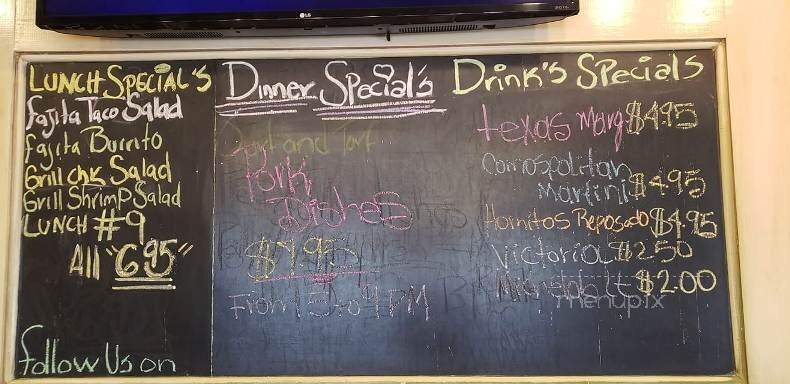 LG
LUNCH SPECIAL'S
fajita Taco Salad
fajita Burrito
Grill chk Salad
Grill Shrimp Salad
LUNCH #9
All "6.95"
follow Us on
Dinner Special's
Pork
Dishes
$7.95
From 5 to 9 PM
Drink's SPecials
texas Marg $4.95
Comospolitan
Martini $4.95
Hornitos Reposado $4.95
Victoria $2.50
$2.00
menupix